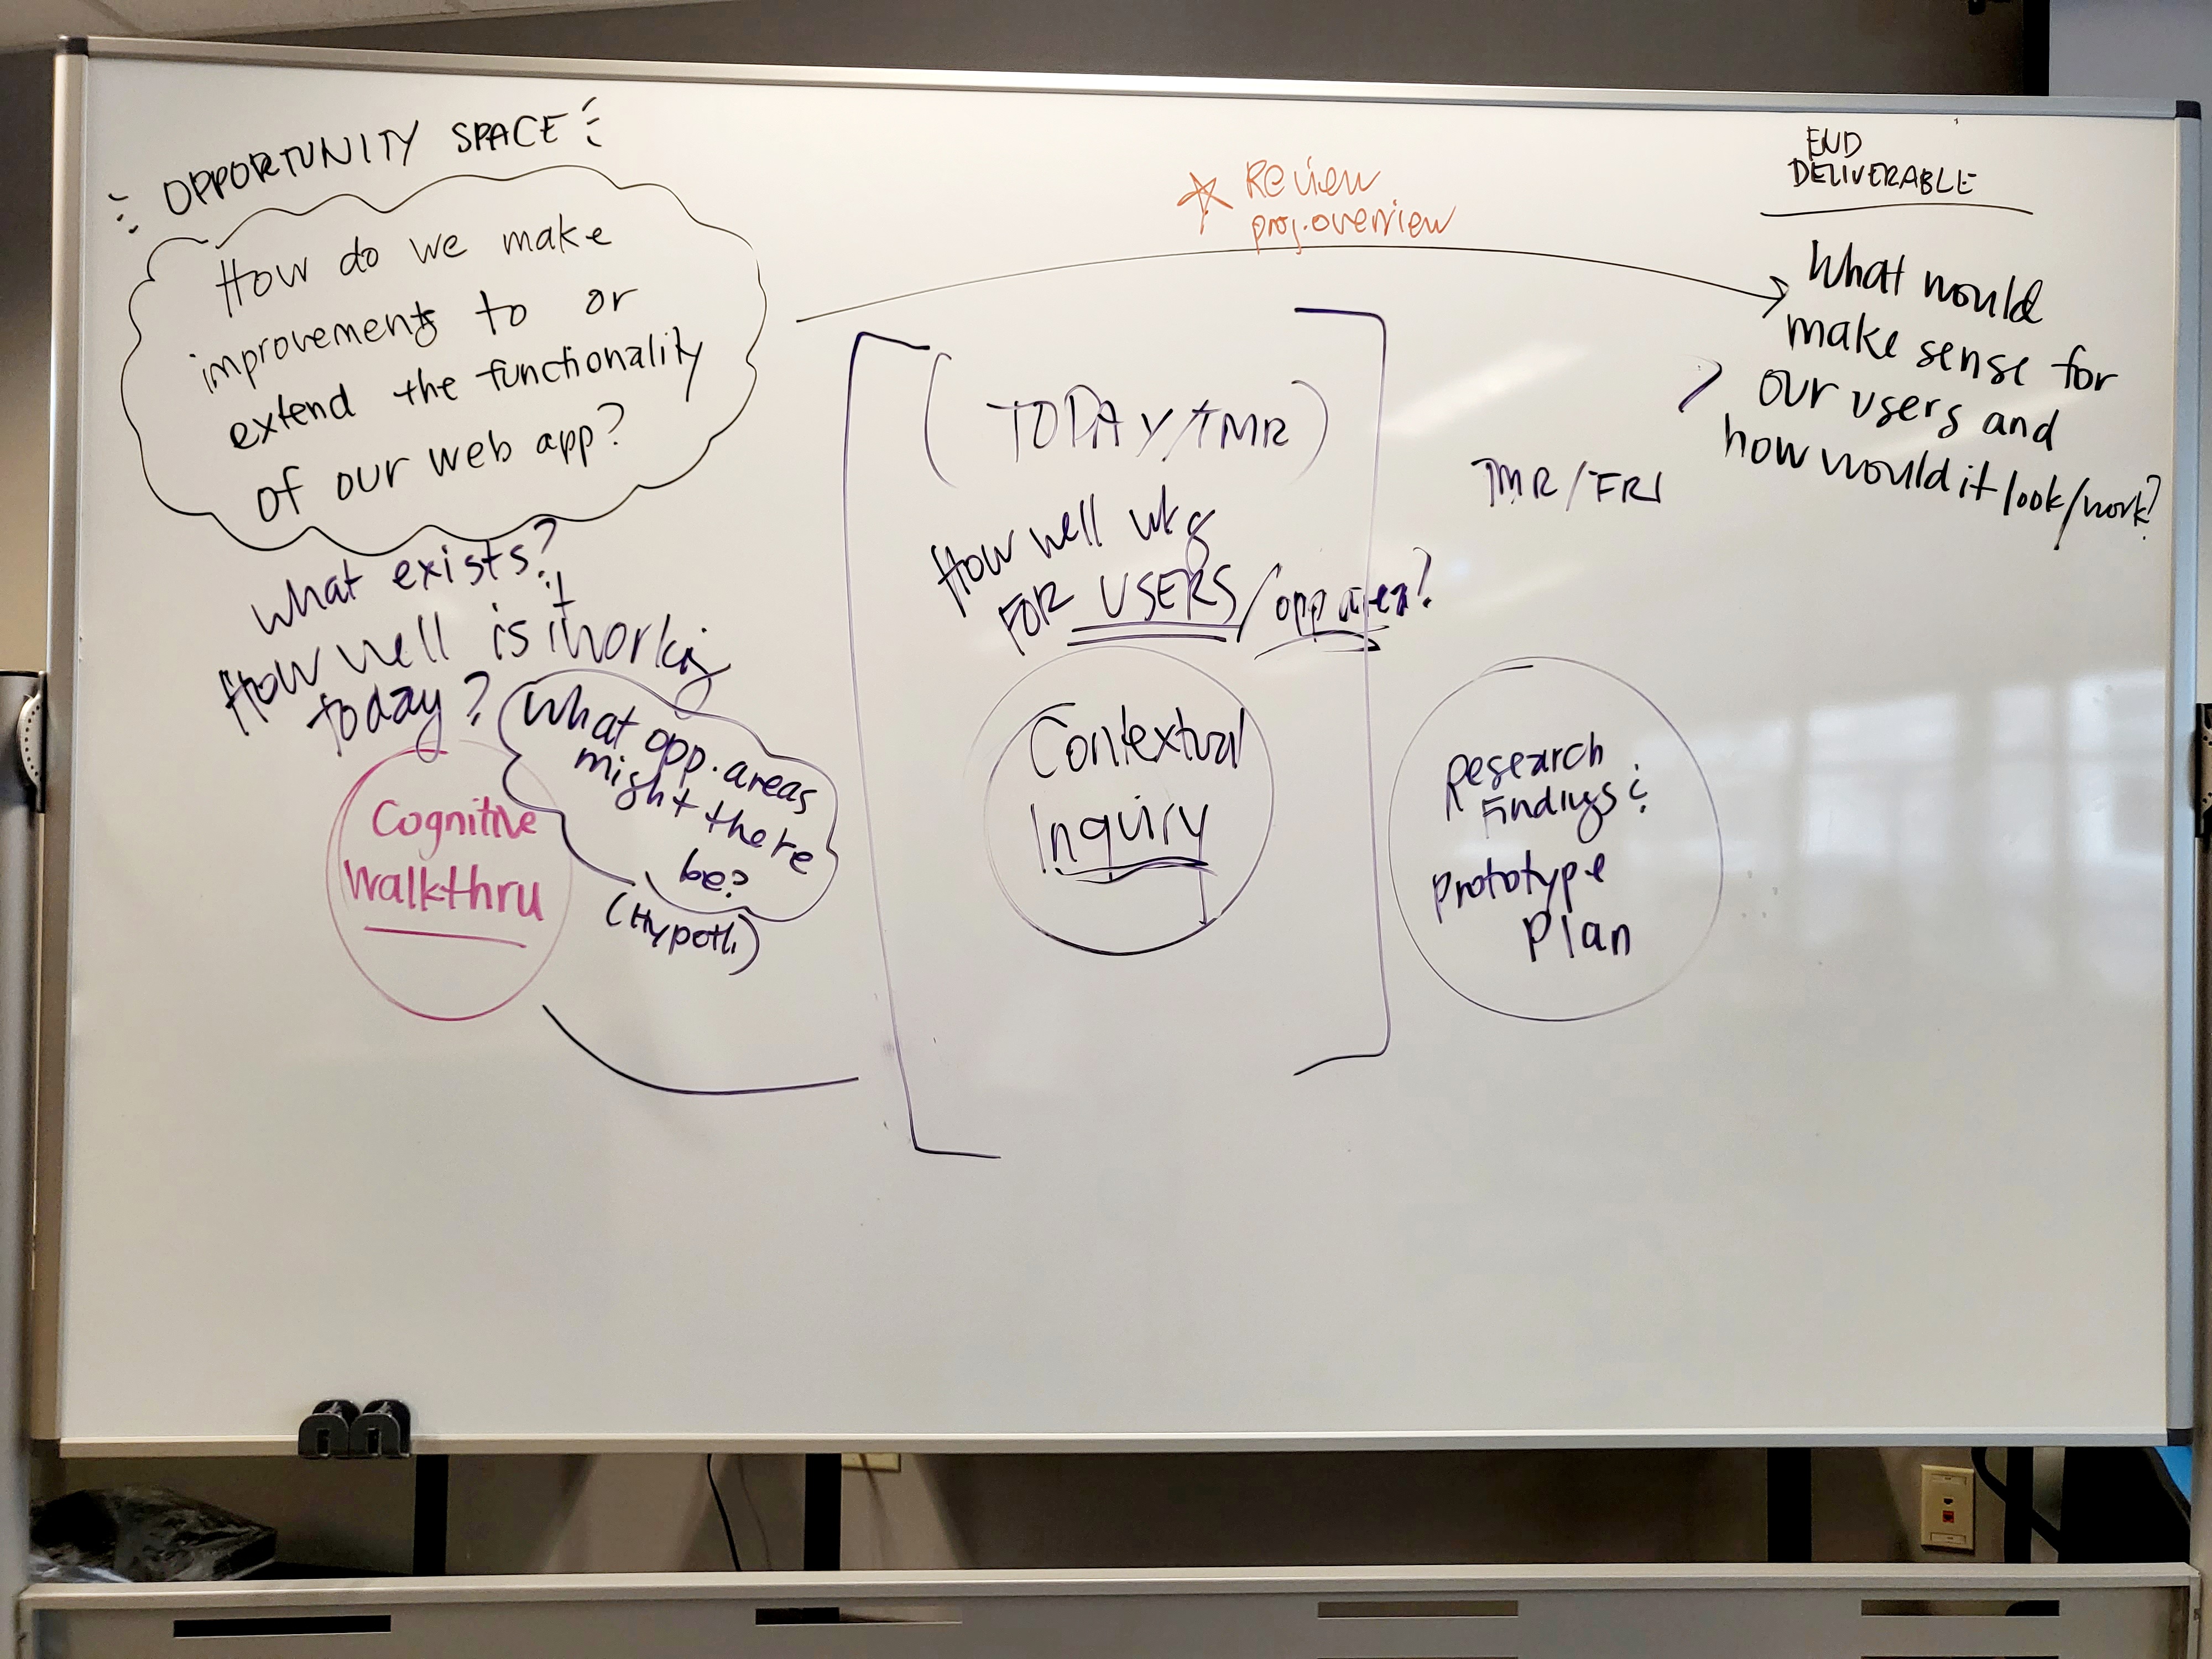 OPPORTUNITY SPACE
How do we make
improvements to or
extend the functionality
of our web app?
What exists?
How well is it working
today?
Cognitive
Walkthru
What opp. areas
might there
be?
(Hypoth.)
Review
proj. overview
(TODAY/TMR)
How well wkg
FOR USERS/opp area?
Contextual
Inquiry
TMR/FRI
Research
Findings &
Prototype
Plan
END
DELIVERABLE
What would
make sense for
our users and
how would it look/work?